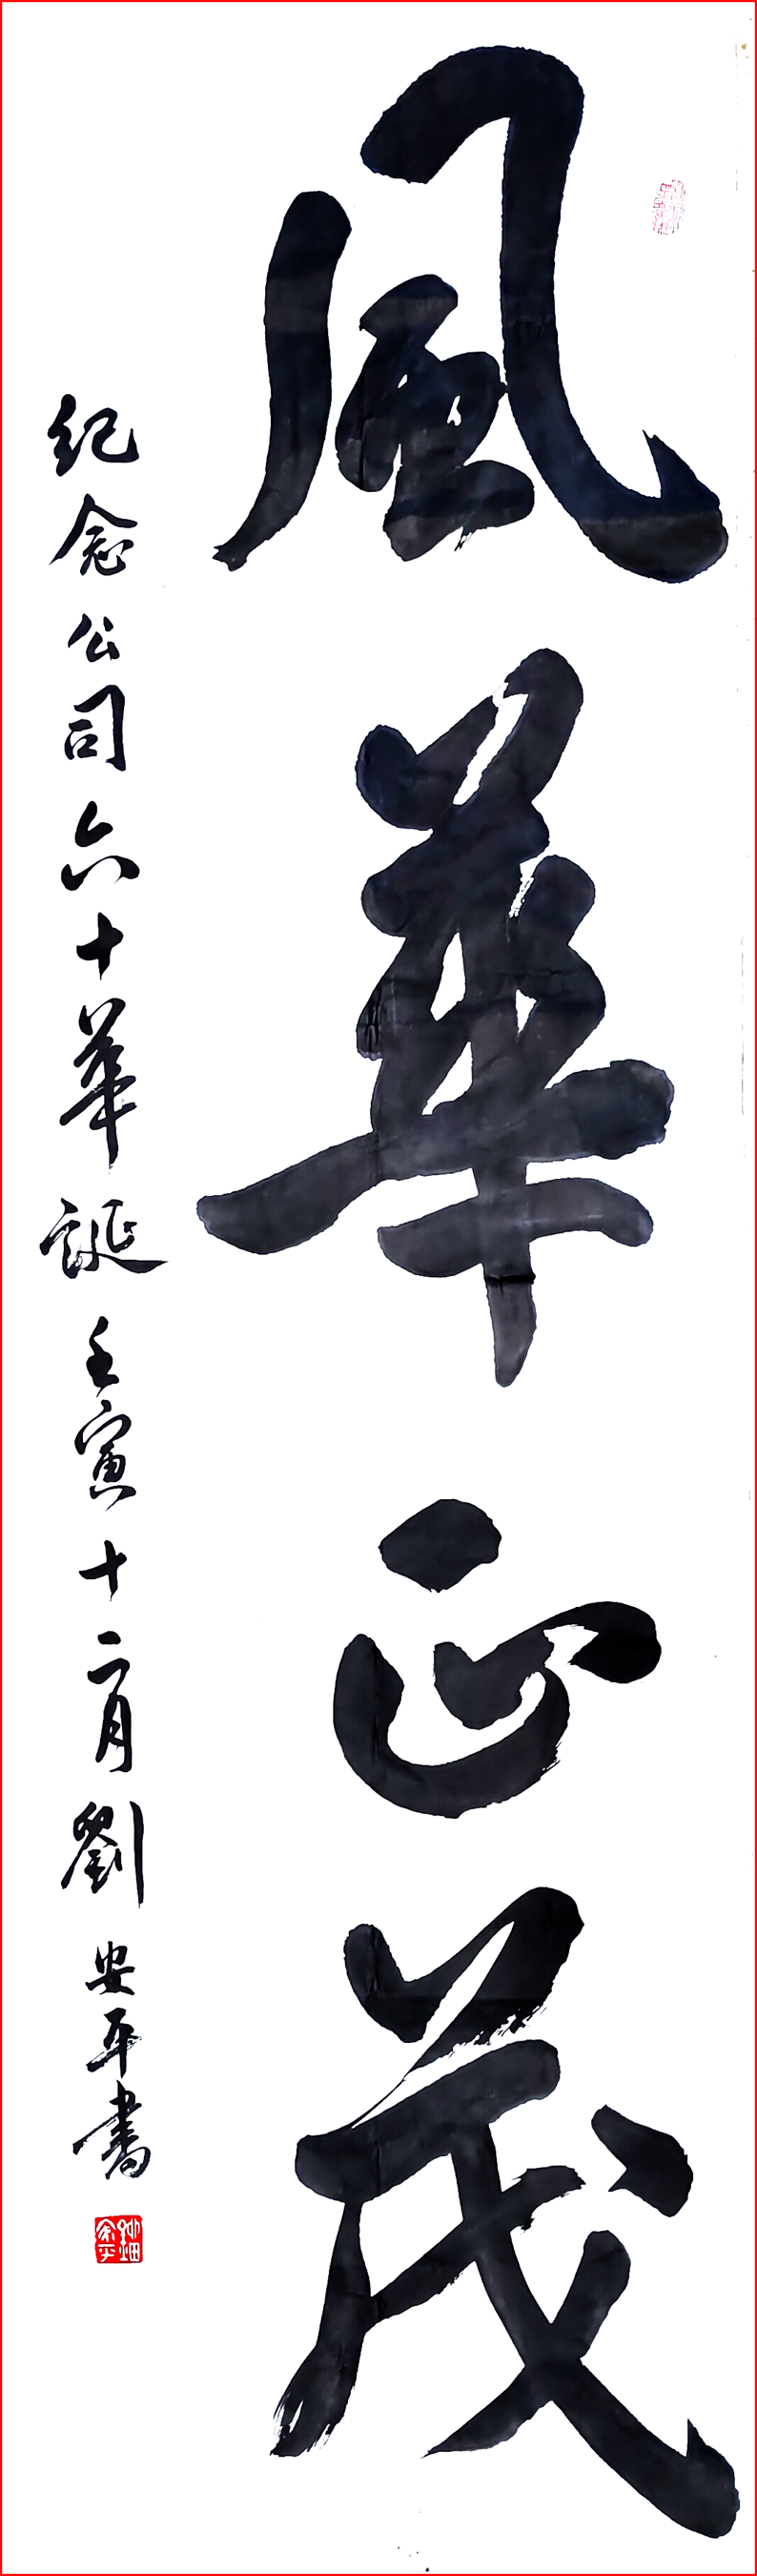 風華正茂
纪念公司六十華誕壬寅十二月劉安平書